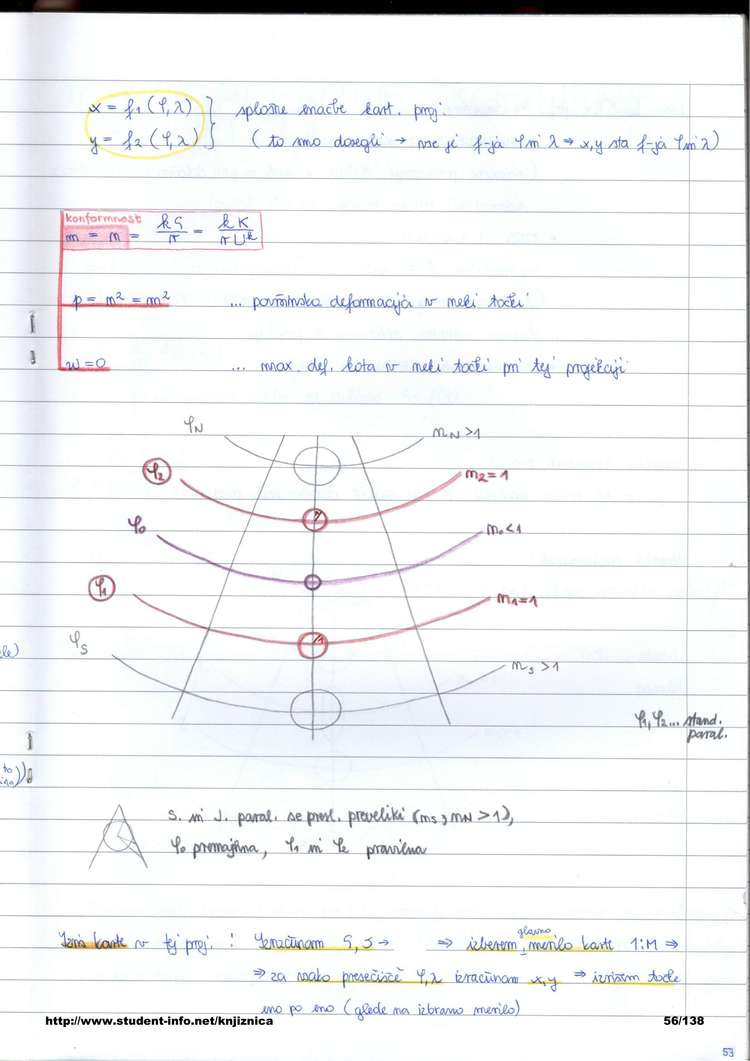 x = f₁ (φ,λ) } splošne enačbe kart. proj.
y = f₂ (φ,λ) } (to smo dosegli → vse je f-ja φ in λ ⇒ x,y sta f-ja φ in λ)
konformnost
m = n = kς/r = kK/rUᵏ
p = m² = n² ... površinska deformacija v neki točki
w = 0 ... max. def. kota v neki točki pri tej projekciji
φN mN > 1
φ₂ m₂ = 1
φ₀ m₀ < 1
φ₁ m₁ = 1
φS mS > 1
φ₁, φ₂ ... stand.
paral.
S. in J. paral. se presl. preveliki (mS, mN > 1),
φ₀ premajhna, φ₁ in φ₂ pravilna
glavno
Izris karte v tej proj.: Izračunam ς, δ → ⇒ izberem merilo karte 1:M ⇒
⇒ za vsako presečišče φ,λ izračunam x,y ⇒ izrišem točke
eno po eno (glede na izbrano merilo)
http://www.student-info.net/knjiznica 56/138
53